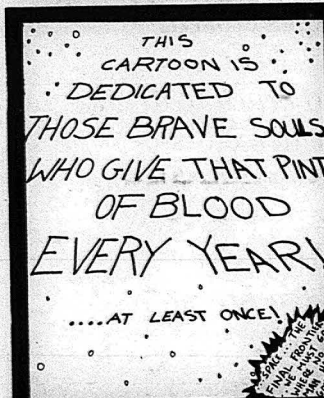 THIS
CARTOON IS
DEDICATED TO
THOSE BRAVE SOULS
WHO GIVE THAT PINT
OF BLOOD
EVERY YEAR!
....AT LEAST ONCE!
SPACE... THE
FINAL FRONTIER
WE MUST GO
WHERE NO
MAN